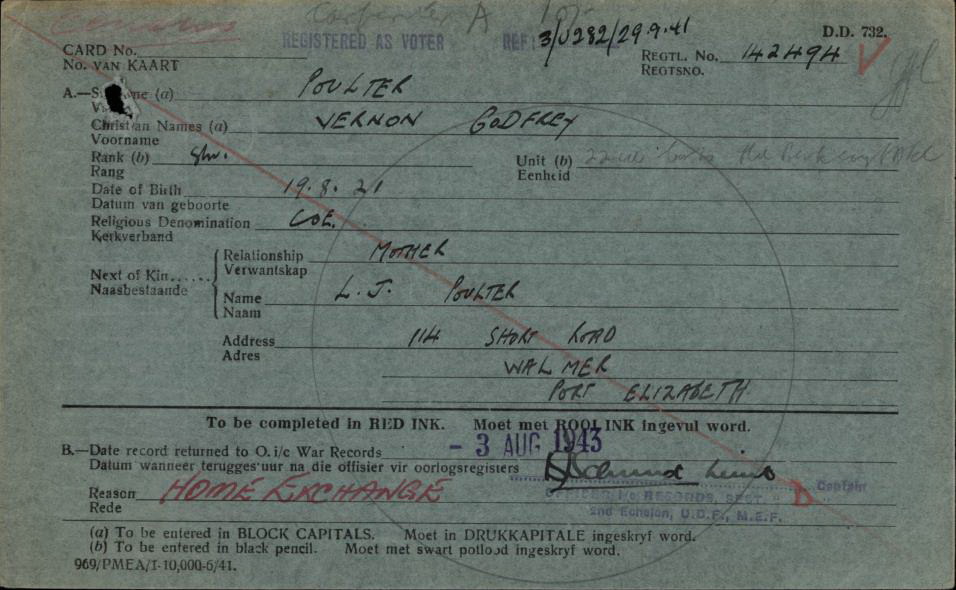 REGISTERED AS VOTER REF. 3/U282/29.9.41
D.D. 732.
CARD No.
No. VAN KAART
REGTL. No. 142494
REGTSNO.
A.—Surname (a) POULTER
Christian Names (a) VERNON GODFREY
Voorname
Rank (b)
Rang
Unit (b)
Eenheid
Date of Birth 19.8.21
Datum van geboorte
Religious Denomination COE.
Kerkverband
Next of Kin......
Naasbestaande
Relationship MOTHER
Verwantskap
Name L. J. POULTER
Naam
Address 114 SHORT ROAD
Adres
WALMER
PORT ELIZABETH
To be completed in RED INK. Moet met ROOI INK ingevul word.
B.—Date record returned to O. i/c War Records - 3 AUG 1943
Datum wanneer teruggestuur na die offisier vir oorlogsregisters
Captain
Reason HOME EXCHANGE
Rede
OFFICER i/c RECORDS,
2nd Echelon, U.D.F., M.E.F.
(a) To be entered in BLOCK CAPITALS. Moet in DRUKKAPITALE ingeskryf word.
(b) To be entered in black pencil. Moet met swart potlood ingeskryf word.
969/PMEA/1-10,000-6/41.